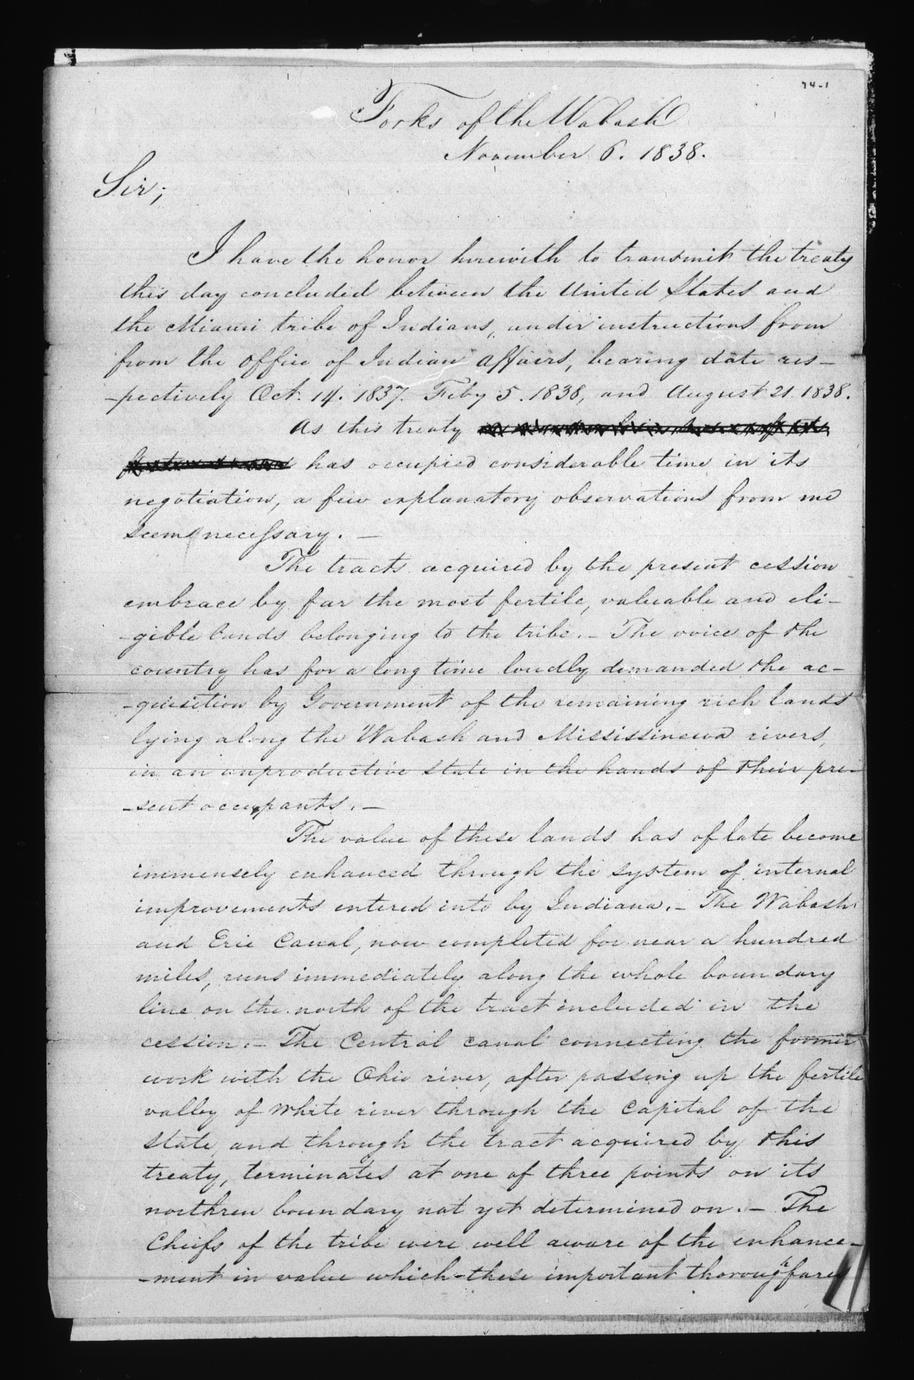 74-1
Forks of the Wabash
November 6. 1838.
Sir;
I have the honor herewith to transmit the treaty
this day concluded between the United States and
the Miami tribe of Indians, under instructions from
from the office of Indian affairs, bearing date res-
-pectively Oct. 14. 1837. Feby 5. 1838, and August 21 1838.
As this treaty
has occupied considerable time in its
negotiation, a few explanatory observations from me
seem necessary. —
The tracts acquired by the present cession
embrace by far the most fertile, valuable and eli-
-gible lands belonging to the tribe. — The voice of the
country has for a long time loudly demanded the ac-
-quisition by Government of the remaining rich lands
lying along the Wabash and Mississinewa rivers,
in an unproductive state in the hands of their pre-
-sent occupants. —
The value of these lands has of late become
immensely enhanced through the system of internal
improvements entered into by Indiana. — The Wabash
and Erie Canal, now completed for near a hundred
miles, runs immediately along the whole boundary
line on the north of the tract included in the
cession. — The Central canal connecting the former
work with the Ohio river, after passing up the fertile
valley of White river through the Capital of the
State, and through the tract acquired by this
treaty, terminates at one of three points on its
northren boundary not yet determined on. — The
Chiefs of the tribe were well aware of the enhance-
-ment in value which these important thoroughfares